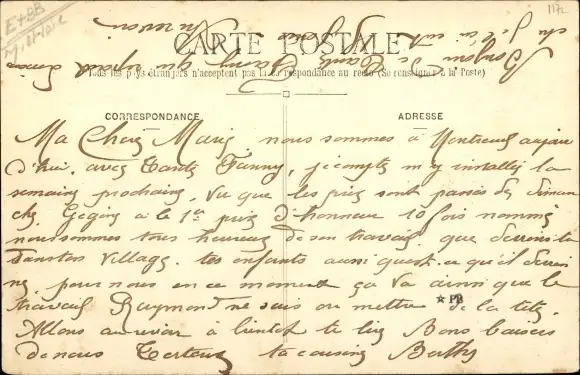 1172
E+BB
CARTE POSTALE
Tous les pays étrangers n'acceptent pas la correspondance au recto (Se renseigner à la Poste)
CORRESPONDANCE
ADRESSE
Ma Chere Marie nous sommes à Montreuil aujour
d'hui avec Tante Fanny, je compte m'y installer la
semaine prochaine, vu que les prix sont passés de diman
che Gegene a le 1er prix d'honneur 10 fois nommé
nous sommes tous heureux de son travail que
dans ton village tes enfants aussi quest ce qu'il
ne pour nous en ce moment ça va ainsi que le
travail Raymond ne sais ou mettre de la tete
★ PB
Allons au revoir à bientot te lire Bons baisers
de nous ta cousine Berthe
Bonjour de Tante Fanny
Au revoir